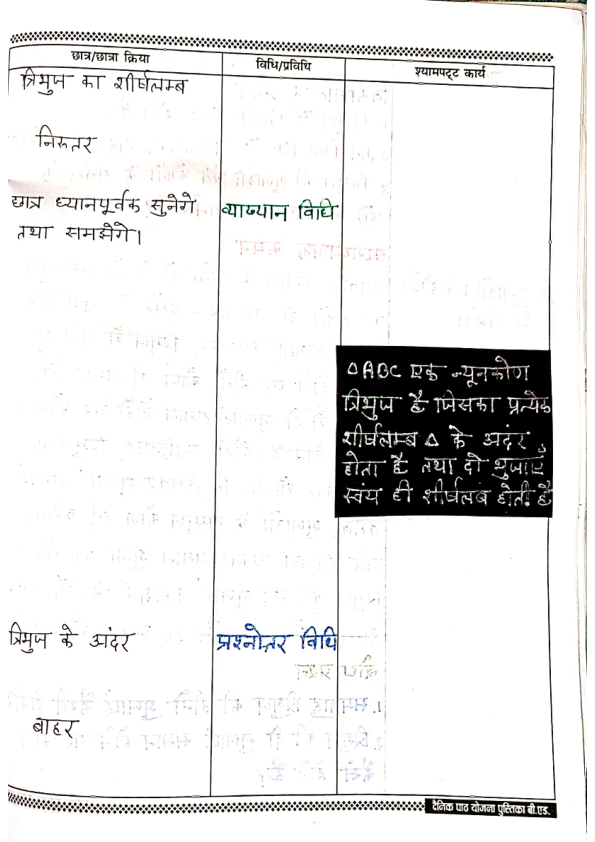 छात्र/छात्रा क्रिया
विधि/प्रविधि
श्यामपट्ट कार्य
त्रिभुज का शीर्षलम्ब
निरूतर
छात्र ध्यानपूर्वक सुनेगे
तथा समझेंगे।
व्याख्यान विधि
△ABC एक न्यूनकोण
त्रिभुज है जिसका प्रत्येक
शीर्षलम्ब △ के अंदर
होता है तथा दो भुजाएं
स्वंय ही शीर्षलंब होती है
त्रिभुज के अंदर
प्रश्नोत्तर विधि
बाहर
दैनिक पाठ योजना पुस्तिका बी.एड.